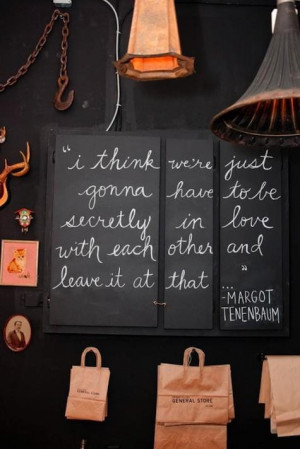 "i think we're just
gonna have to be
secretly in love
with each other and
leave it at that "
...
-MARGOT
TENENBAUM
GENERAL STORE
GENERAL STORE